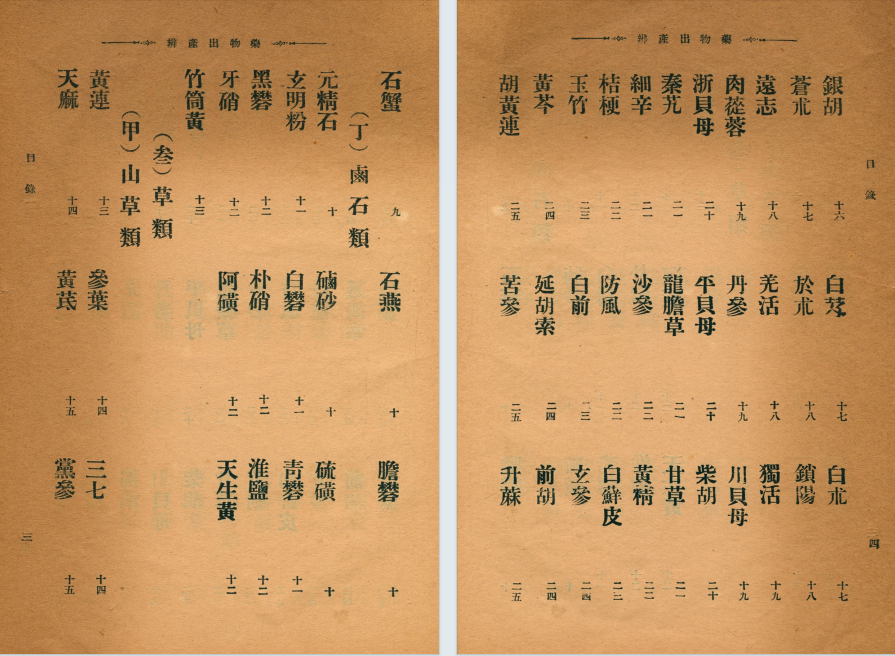 藥物出產辨
石蟹 九 石燕 十 膽礬 十
(丁)鹵石類
元精石 十 磠砂 十 硫磺 十
玄明粉 十一 白礬 十一 青礬 十一
黑礬 十二 朴硝 十二 淮鹽 十二
牙硝 十二 阿磺 十二 天生黃 十二
竹筒黃 十三
(叁)草類
(甲)山草類
黃連 十三 參葉 十四 三七 十四
天麻 十四 黃芪 十五 黨參 十五
目錄 三
藥物出產辨
目錄 四
銀胡 十六 白芨 十七 白朮 十七
蒼朮 十七 於朮 十八 鎖陽 十八
遠志 十八 羌活 十八 獨活 十九
肉蓯蓉 十九 丹參 十九 川貝母 十九
浙貝母 二十 平貝母 二十 柴胡 二十
秦艽 二一 龍膽草 二一 甘草 二一
細辛 二一 沙參 二二 黃精 二二
桔梗 二二 防風 二二 白蘚皮
玉竹 二三 白前 二三 玄參 二四
黃芩 二四 延胡索 二四 前胡 二四
胡黃連 二五 苦參 二五 升蔴 二五